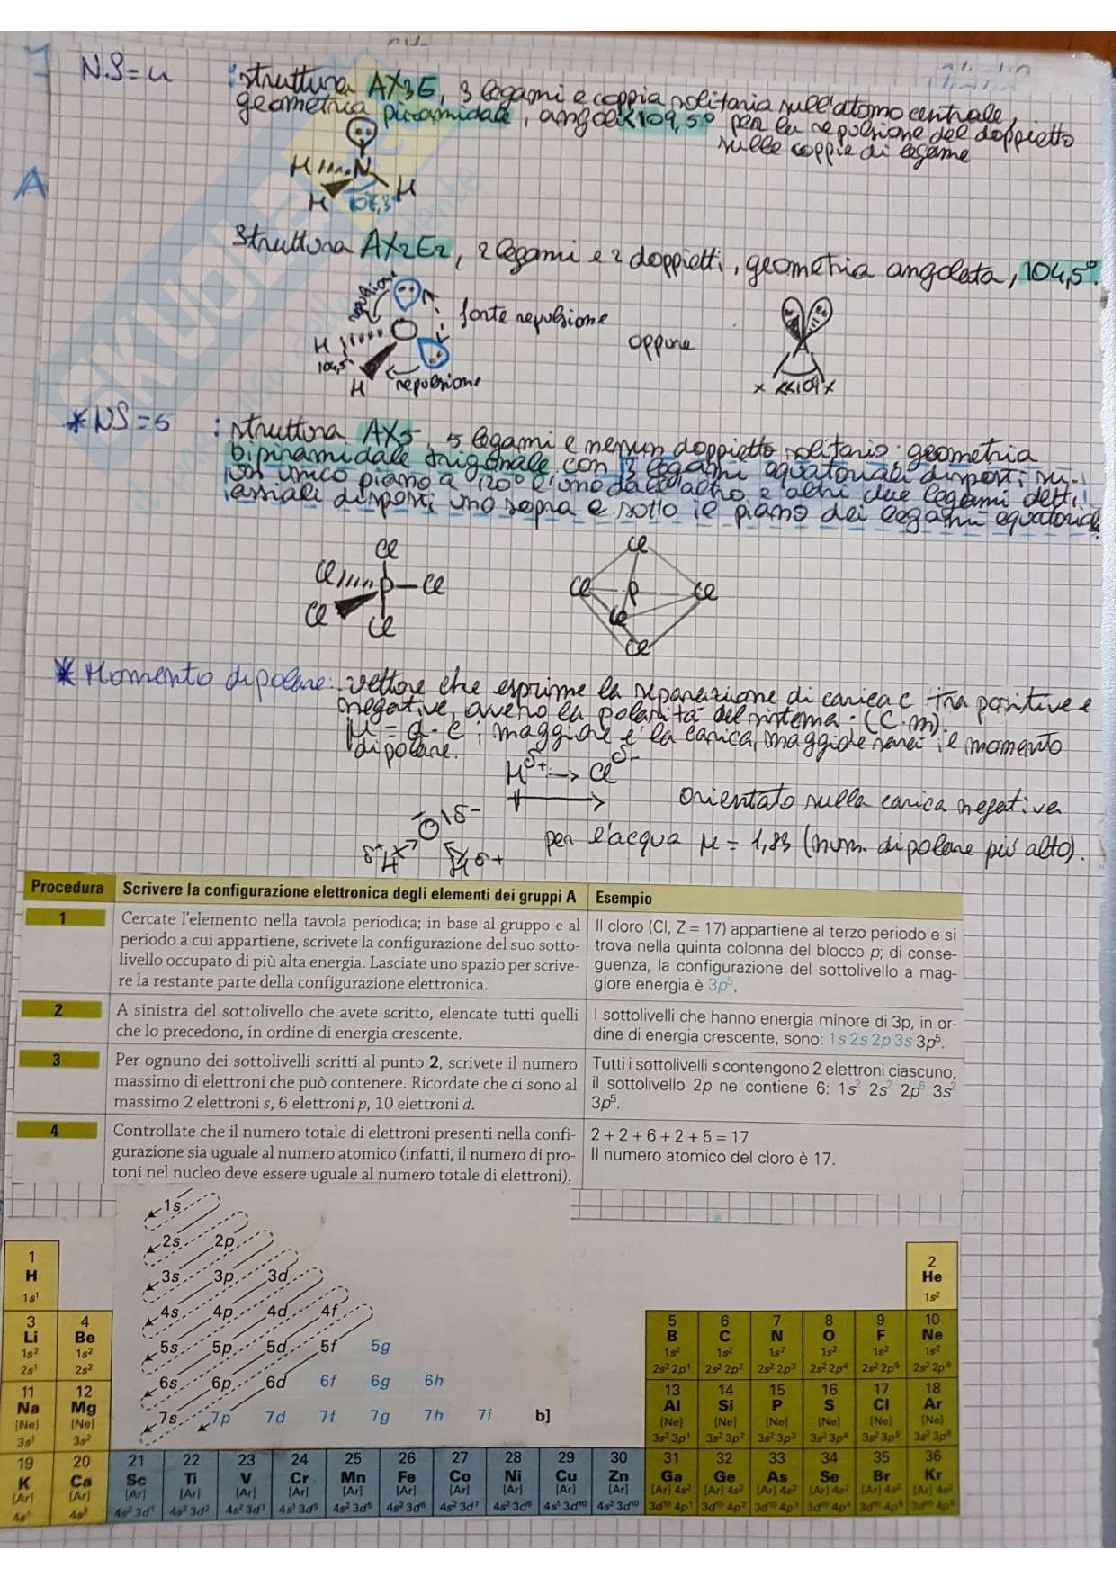 N.S=4 : struttura AX3E, 3 legami e coppia solitaria sull'atomo centrale,
geometria piramidale, angoli <109,5° per la repulsione del doppietto
sulle coppie di legame
H N H
H 107,3°
A
Struttura AX2E2, 2 legami e 2 doppietti, geometria angolata, 104,5°.
repulsione
forte repulsione
H O
104,5°
H repulsione
oppure
x <<109 x
* NS=5 : struttura AX5, 5 legami e nessun doppietto solitario: geometria
bipiramidale trigonale con 3 legami equatoriali disposti su
un unico piano a 120° l'uno dall'altro e altri due legami detti
assiali disposti uno sopra e sotto il piano dei legami equatoriali.
Cl
Cl P Cl
Cl
Cl
Cl
Cl P Cl
Cl
Cl
* Momento dipolare: vettore che esprime la separazione di carica tra positive e
negative, avvero la polarità del sistema. (C·m).
μ = q · l ; maggiore è la carica, maggiore sarà il momento
dipolare.
Hδ+ → Clδ-
orientato sulla carica negativa
O δ-
H H δ+
per l'acqua μ = 1,83 (mom. dipolare più alto).
Procedura Scrivere la configurazione elettronica degli elementi dei gruppi A Esempio
1 Cercate l'elemento nella tavola periodica; in base al gruppo e al
periodo a cui appartiene, scrivete la configurazione del suo sotto-
livello occupato di più alta energia. Lasciate uno spazio per scrive-
re la restante parte della configurazione elettronica.
Il cloro (Cl, Z = 17) appartiene al terzo periodo e si
trova nella quinta colonna del blocco p; di conse-
guenza, la configurazione del sottolivello a mag-
giore energia è 3p⁵.
2 A sinistra del sottolivello che avete scritto, elencate tutti quelli
che lo precedono, in ordine di energia crescente.
I sottolivelli che hanno energia minore di 3p, in or-
dine di energia crescente, sono: 1s 2s 2p 3s 3p⁵.
3 Per ognuno dei sottolivelli scritti al punto 2, scrivete il numero
massimo di elettroni che può contenere. Ricordate che ci sono al
massimo 2 elettroni s, 6 elettroni p, 10 elettroni d.
Tutti i sottolivelli s contengono 2 elettroni ciascuno,
il sottolivello 2p ne contiene 6: 1s² 2s² 2p⁶ 3s²
3p⁵.
4 Controllate che il numero totale di elettroni presenti nella confi-
gurazione sia uguale al numero atomico (infatti, il numero di pro-
toni nel nucleo deve essere uguale al numero totale di elettroni).
2 + 2 + 6 + 2 + 5 = 17
Il numero atomico del cloro è 17.
1s
2s 2p
3s 3p 3d
4s 4p 4d 4f
5s 5p 5d 5f 5g
6s 6p 6d 6f 6g 6h
7s 7p 7d 7f 7g 7h 7i b]
1 2
H He
1s¹ 1s²
3 4 5 6 7 8 9 10
Li Be B C N O F Ne
1s² 1s² 1s² 1s² 1s² 1s² 1s² 1s²
2s¹ 2s² 2s² 2p¹ 2s² 2p² 2s² 2p³ 2s² 2p⁴ 2s² 2p⁵ 2s² 2p⁶
11 12 13 14 15 16 17 18
Na Mg Al Si P S Cl Ar
[Ne] [Ne] [Ne] [Ne] [Ne] [Ne] [Ne] [Ne]
3s¹ 3s² 3s² 3p¹ 3s² 3p² 3s² 3p³ 3s² 3p⁴ 3s² 3p⁵ 3s² 3p⁶
19 20 21 22 23 24 25 26 27 28 29 30 31 32 33 34 35 36
K Ca Sc Ti V Cr Mn Fe Co Ni Cu Zn Ga Ge As Se Br Kr
[Ar] [Ar] [Ar] [Ar] [Ar] [Ar] [Ar] [Ar] [Ar] [Ar] [Ar] [Ar] [Ar] 4s² [Ar] 4s² [Ar] 4s² [Ar] 4s² [Ar] 4s² [Ar] 4s²
4s¹ 4s² 4s² 3d¹ 4s² 3d² 4s² 3d³ 4s¹ 3d⁵ 4s² 3d⁵ 4s² 3d⁶ 4s² 3d⁷ 4s² 3d⁸ 4s¹ 3d¹⁰ 4s² 3d¹⁰ 3d¹⁰ 4p¹ 3d¹⁰ 4p² 3d¹⁰ 4p³ 3d¹⁰ 4p⁴ 3d¹⁰ 4p⁵ 3d¹⁰ 4p⁶